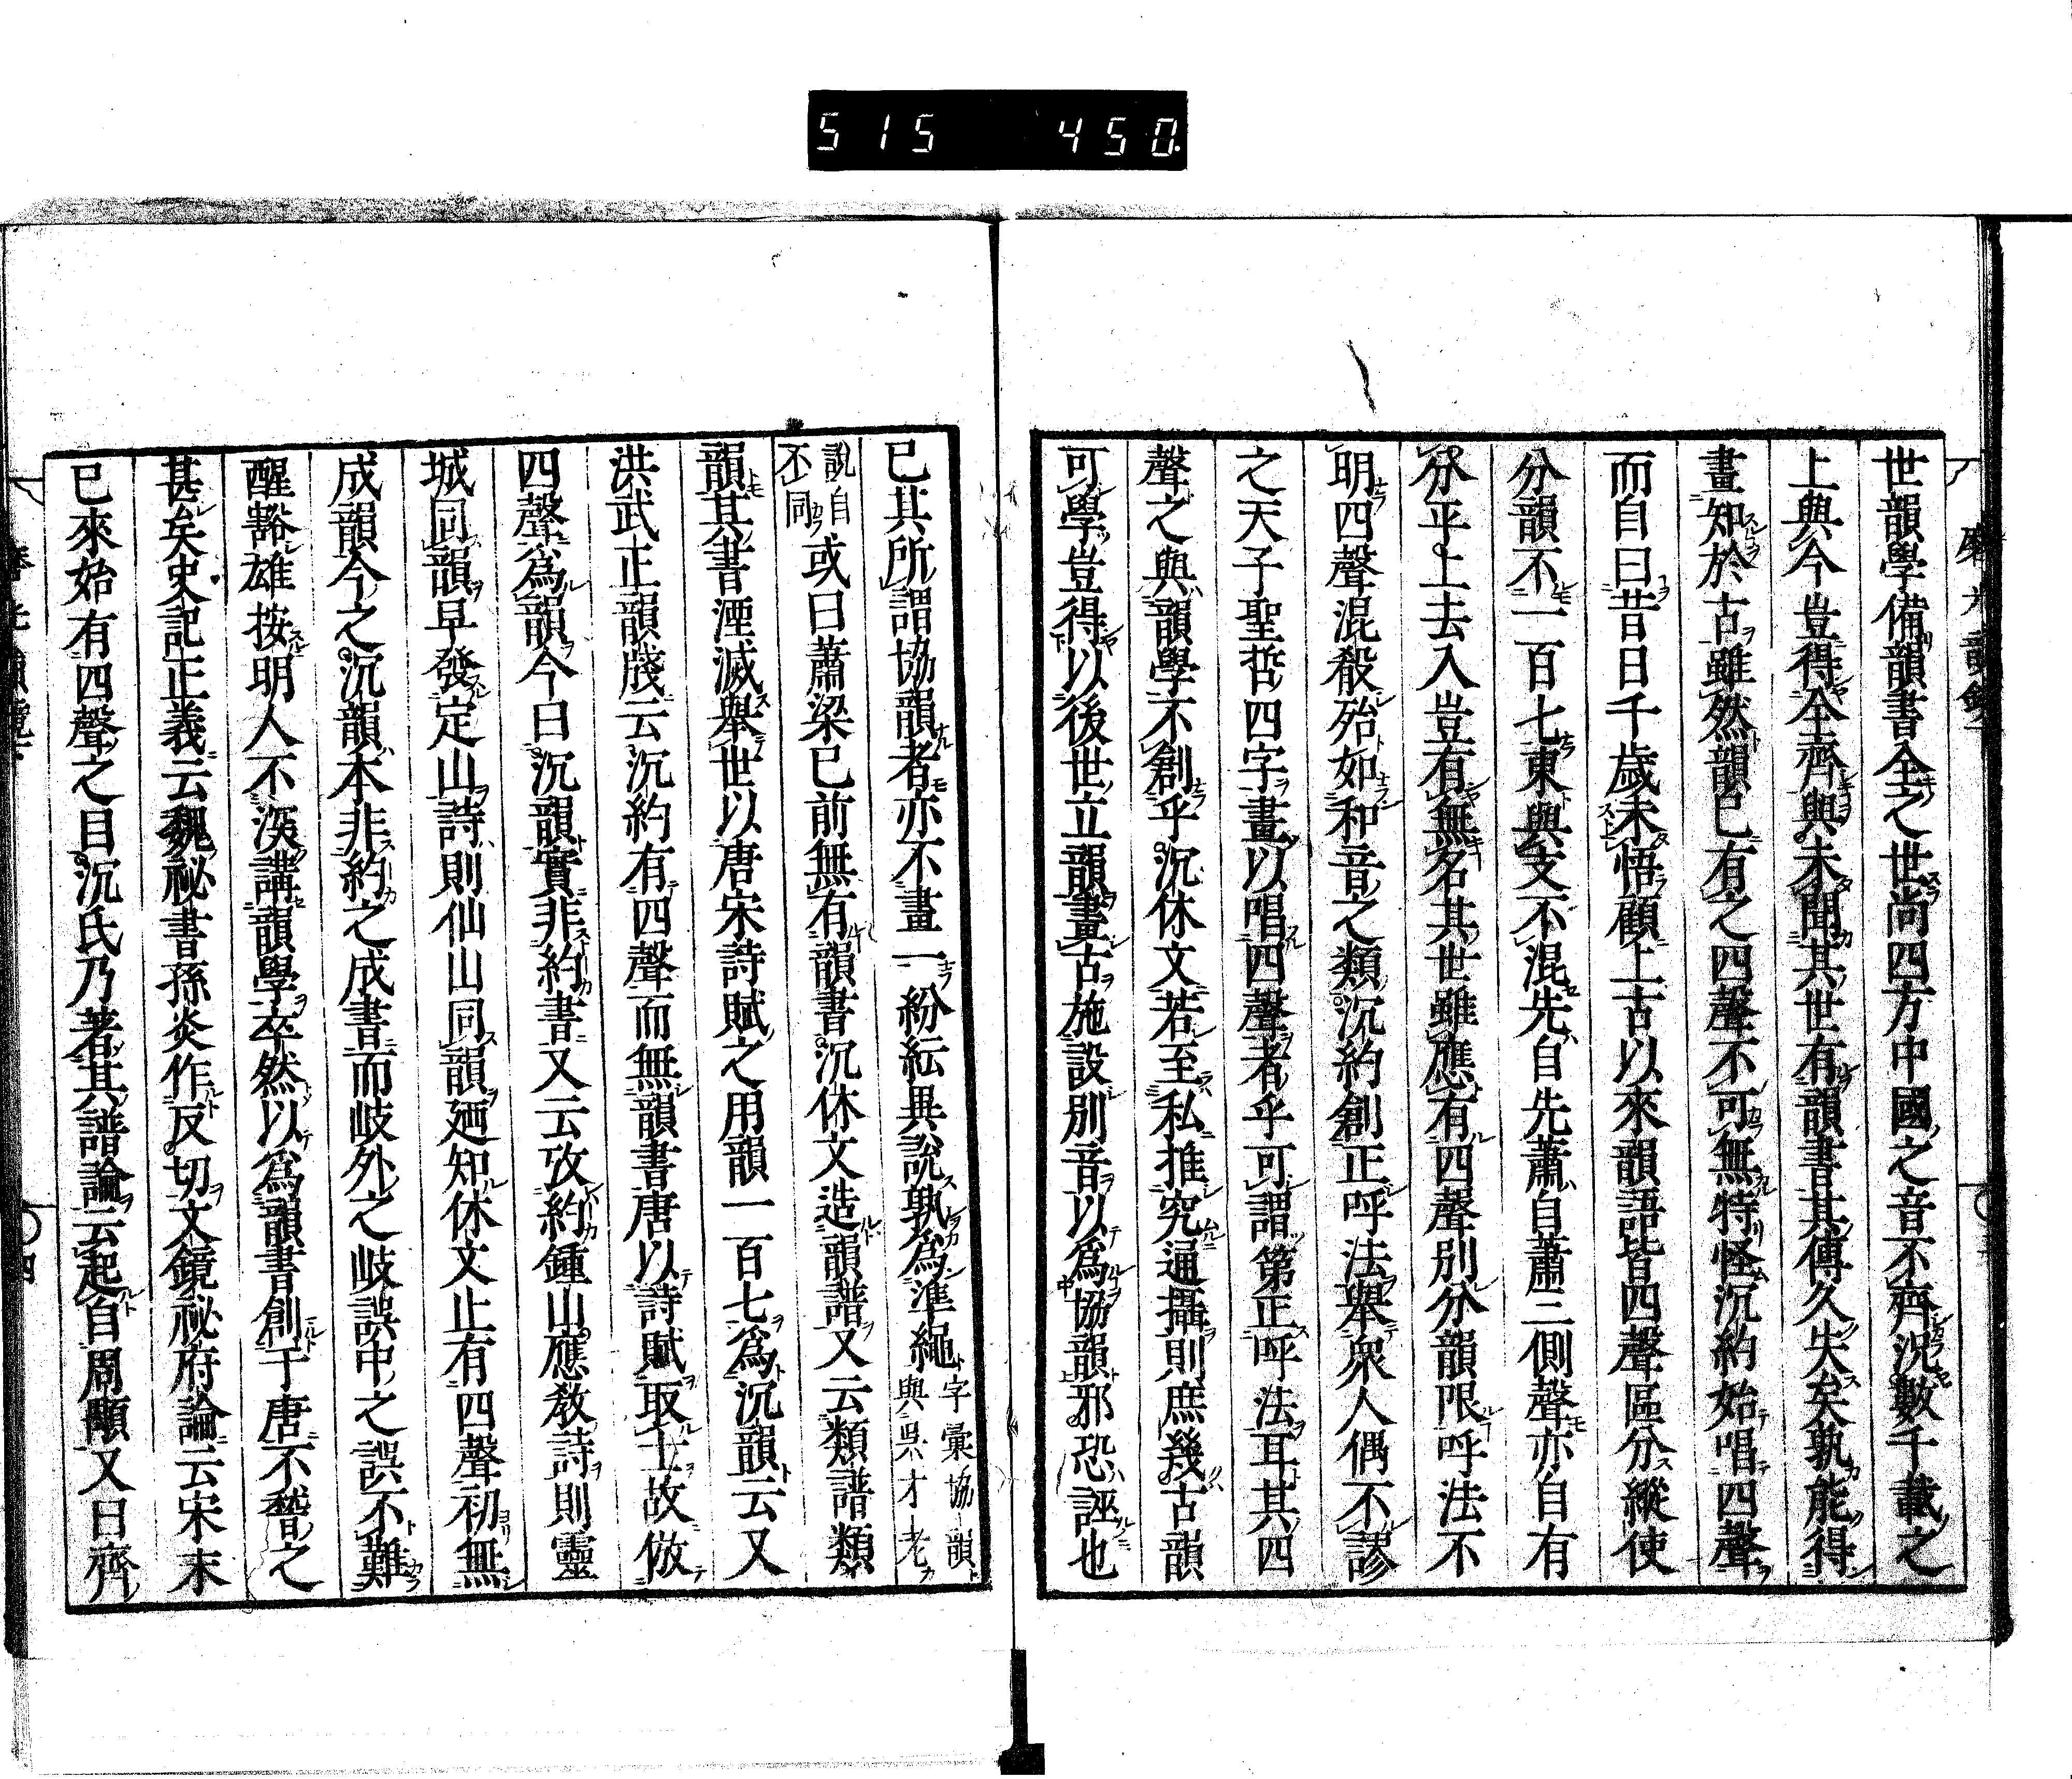 515 450
世韻學備韻書全之世尚四方中國之音不齊況數千載之
上與今豈得全齊與未聞其世有韻書其傳久失矣孰能得
畫知於古雖然韻已有之四聲不可無特怪沉約始唱四聲
而自曰昔日千歲未悟顧上古以來韻語皆四聲區分縱使
分韻不一百七東與支不混先自先蕭自蕭三側聲亦自有
分平上去入豈有無名其世雖應有四聲別分韻限呼法不
明四聲混殽殆如和音之類沉約創正呼法舉衆人偶不謬
之天子聖哲四字畫以唱四聲者乎可謂第正呼法耳其四
聲之與韻學不創乎沉休文若至私推究通攝則庶幾古韻
可學豈得以後世立韻畫古施設別音以爲協韻邪恐誣也
已其所謂協韻者亦不畫一紛紜異說孰爲準繩字彙協韻與吳才老
說自不同或曰蕭梁已前無有韻書沉休文造韻譜又云類譜類
韻其書湮滅舉世以唐宋詩賦之用韻一百七爲沉韻云又
洪武正韻牋云沉約有四聲而無韻書唐以詩賦取士故倣
四聲爲韻今曰沉韻實非約書又云攷約鍾山應教詩則靈
城同韻早發定山詩則仙山同韻廼知休文止有四聲初無
成韻今之沉韻本非約之成書而岐外之岐誤中之誤不難
醒豁雄按明人不深講韻學卒然以爲韻書創于唐不稽之
甚矣史記正義云魏祕書孫炎作反切文鏡祕府論云宋末
已來始有四聲之目沉氏乃著其譜論云起自周顒又曰齊